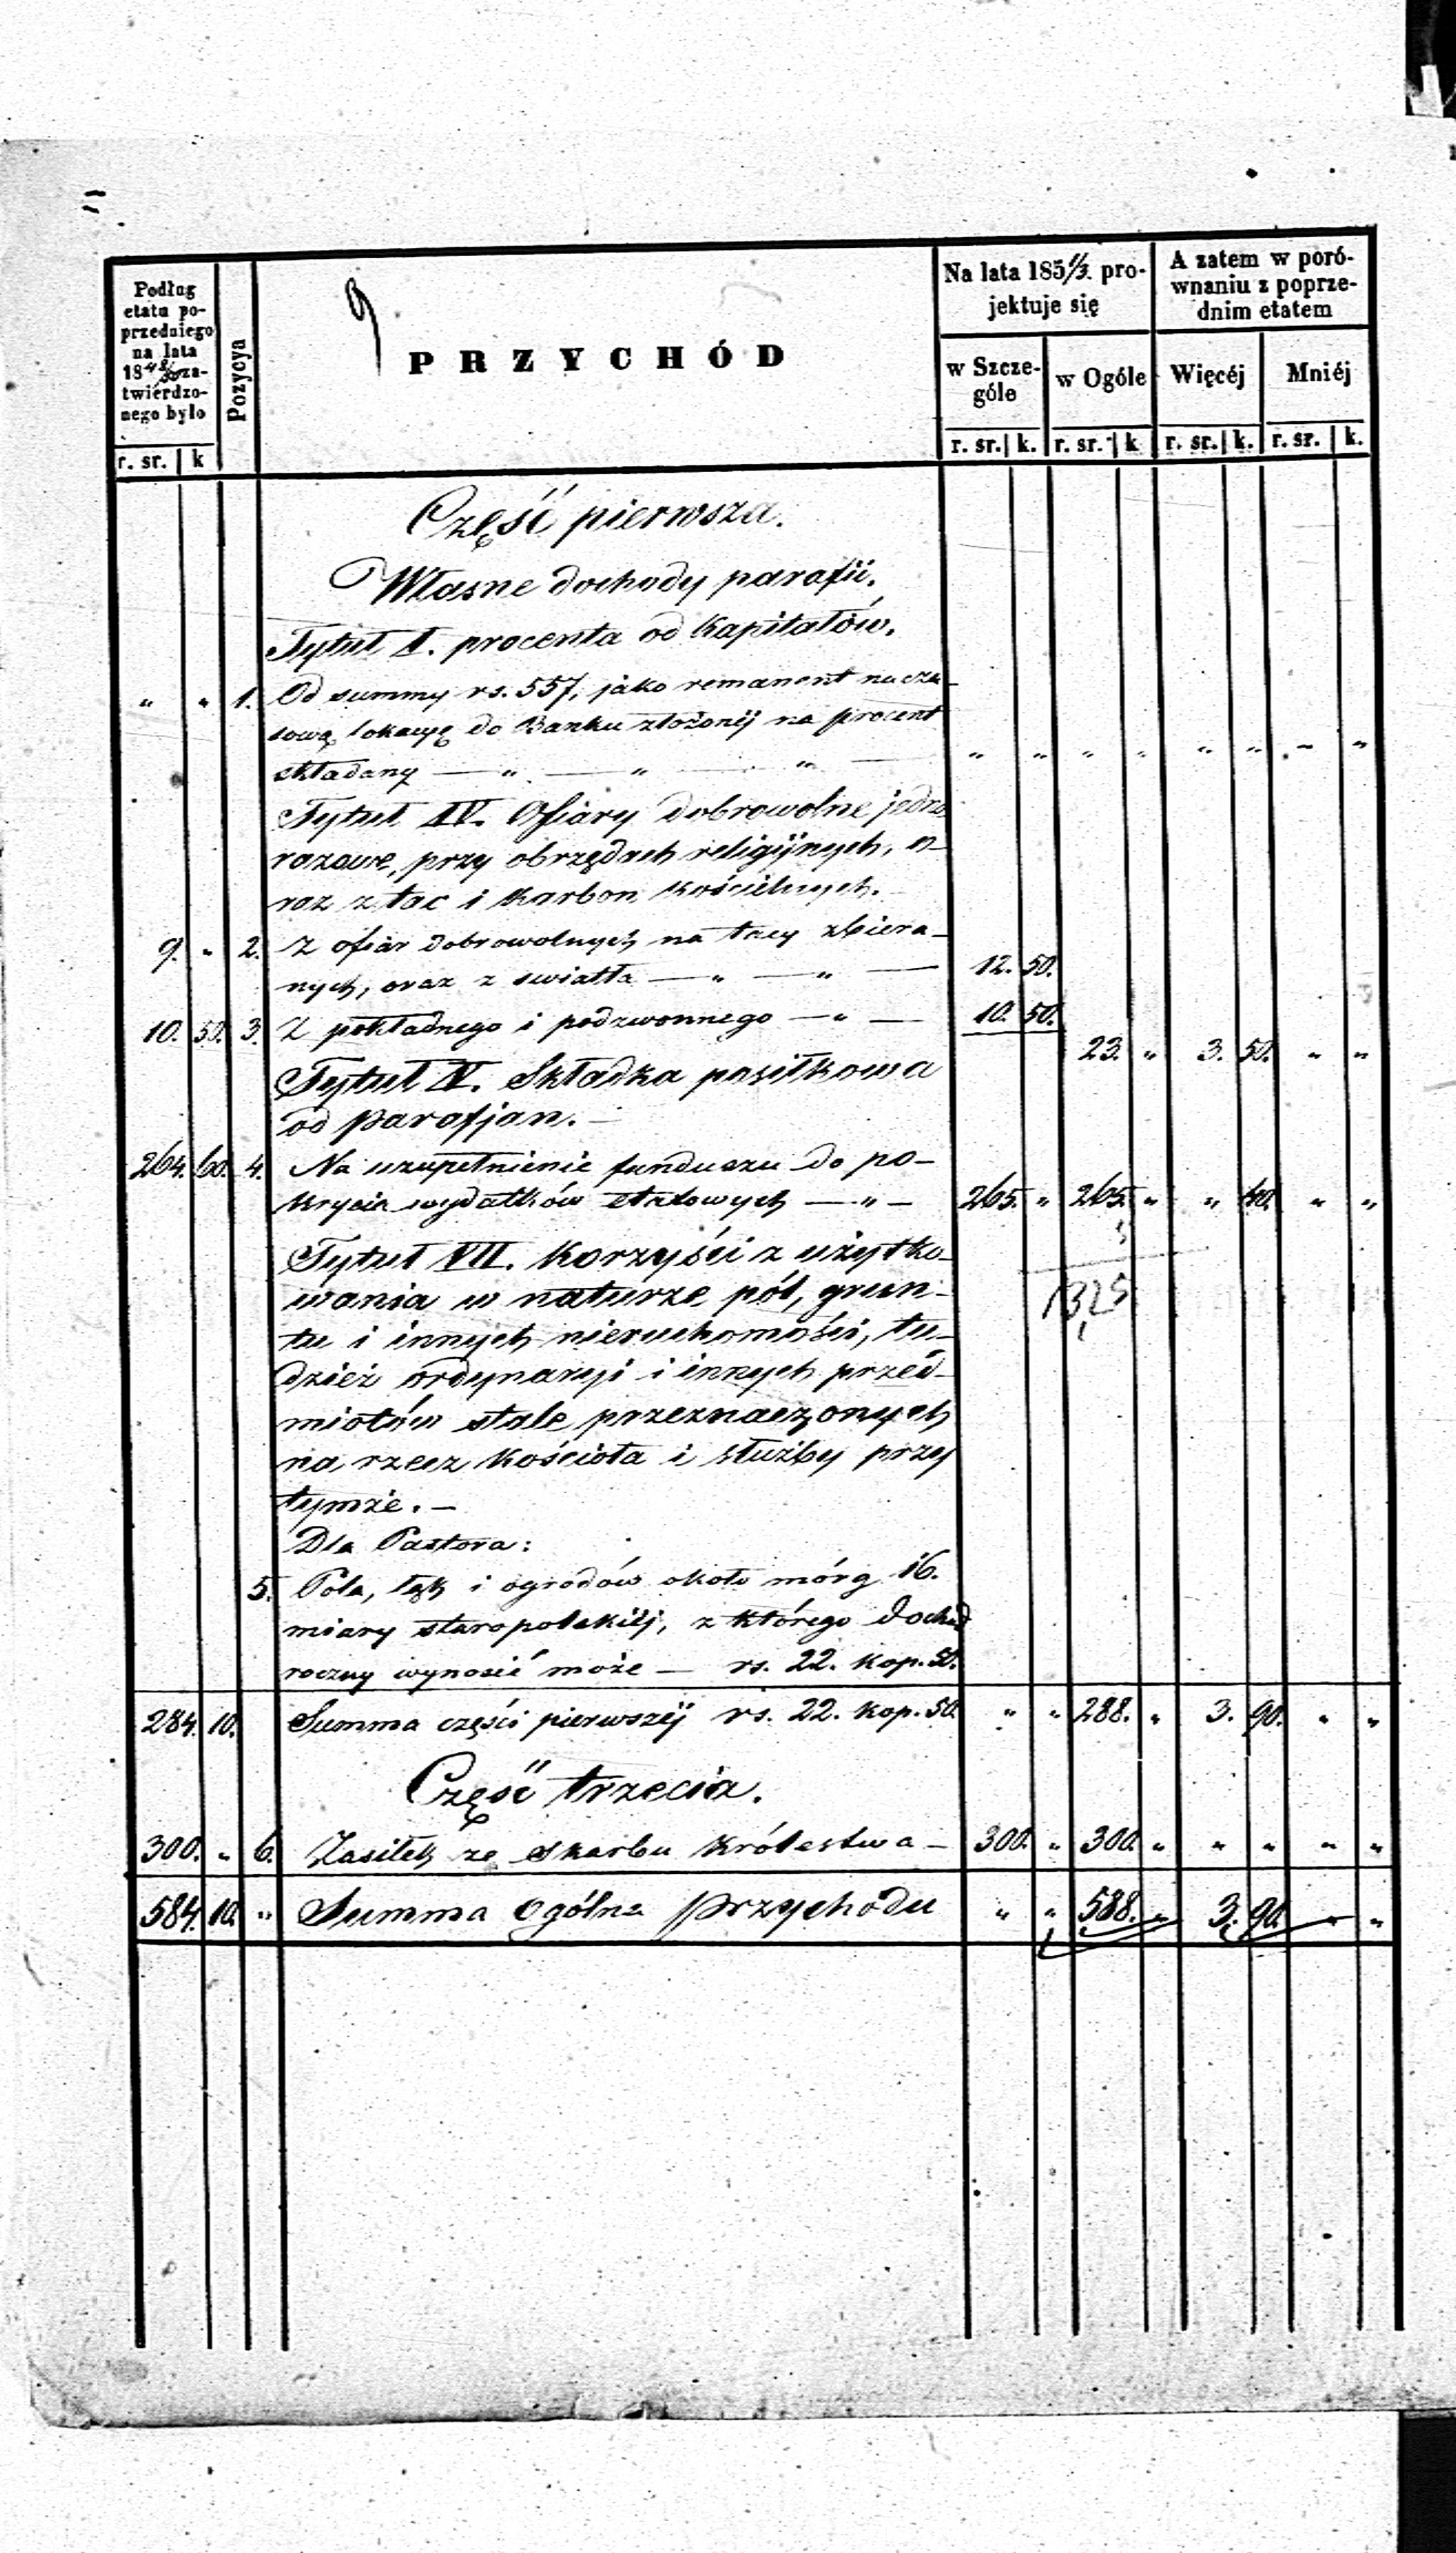 Podług
etatu po-
przedniego
na lata
18 za-
twierdzo-
nego było
r. sr. | k
Pozycya
PRZYCHÓD
Na lata 1851/3. pro-
jektuje się
w Szcze-
góle
r. sr. | k.
w Ogóle
r. sr. | k
A zatem w poró-
wnaniu z poprze-
dnim etatem
Więcéj
r. sr. | k.
Mniéj
r. sr. | k.
Część pierwsza.
Własne dochody parafii.
Tytuł I. procenta od kapitałów.
„ „ 1. Od summy rs. 557, jako remanent na cza-
sową lokacyę do Banku złożonéj na procent
składany — „ — „ — „ — „ „ „ „ „ „ „ „
Tytuł IV. Ofiary dobrowolne jedno
razowe, przy obrzędach religijnych, o-
raz z tac i karbon kościelnych.
9. „ 2. Z ofiar dobrowolnych na tacy zbiera-
nych, oraz z swiatła — „ — „ — 12. 50.
10. 50. 3. Z pokładnego i podzwonnego — „ — 10. 50.
23. „ 3. 50. „ „
Tytuł V. Składka posiłkowa
od parafjan. —
264. 60. 4. Na uzupełnienie funduszu do po-
krycia wydatków etatowych — „ — 265. „ 265. „ „ 40. „ „
Tytuł VII. Korzyści z użytko-
wania w naturze pól, grun-
tu i innych nieruchomości, tu-
dzież ordynaryi i innych przed-
miotów stale przeznaczonych
na rzecz kościoła i służby przy
tymże. —
1325
Dla Pastora:
5. Pola, łąk i ogrodów około mórg 16.
miary staropolskiéj, z którego dochód
roczny wynosić może — rs. 22. kop. 50.
284. 10. Summa części pierwszéj rs. 22. kop. 50. „ „ 288. „ 3. 90. „ „
Część trzecia.
300. „ 6. Zasiłek ze skarbu Królestwa — 300. „ 300. „ „ „ „ „
584. 10. „ Summa ogólna przychodu „ „ 588. „ 3. 90. „ „